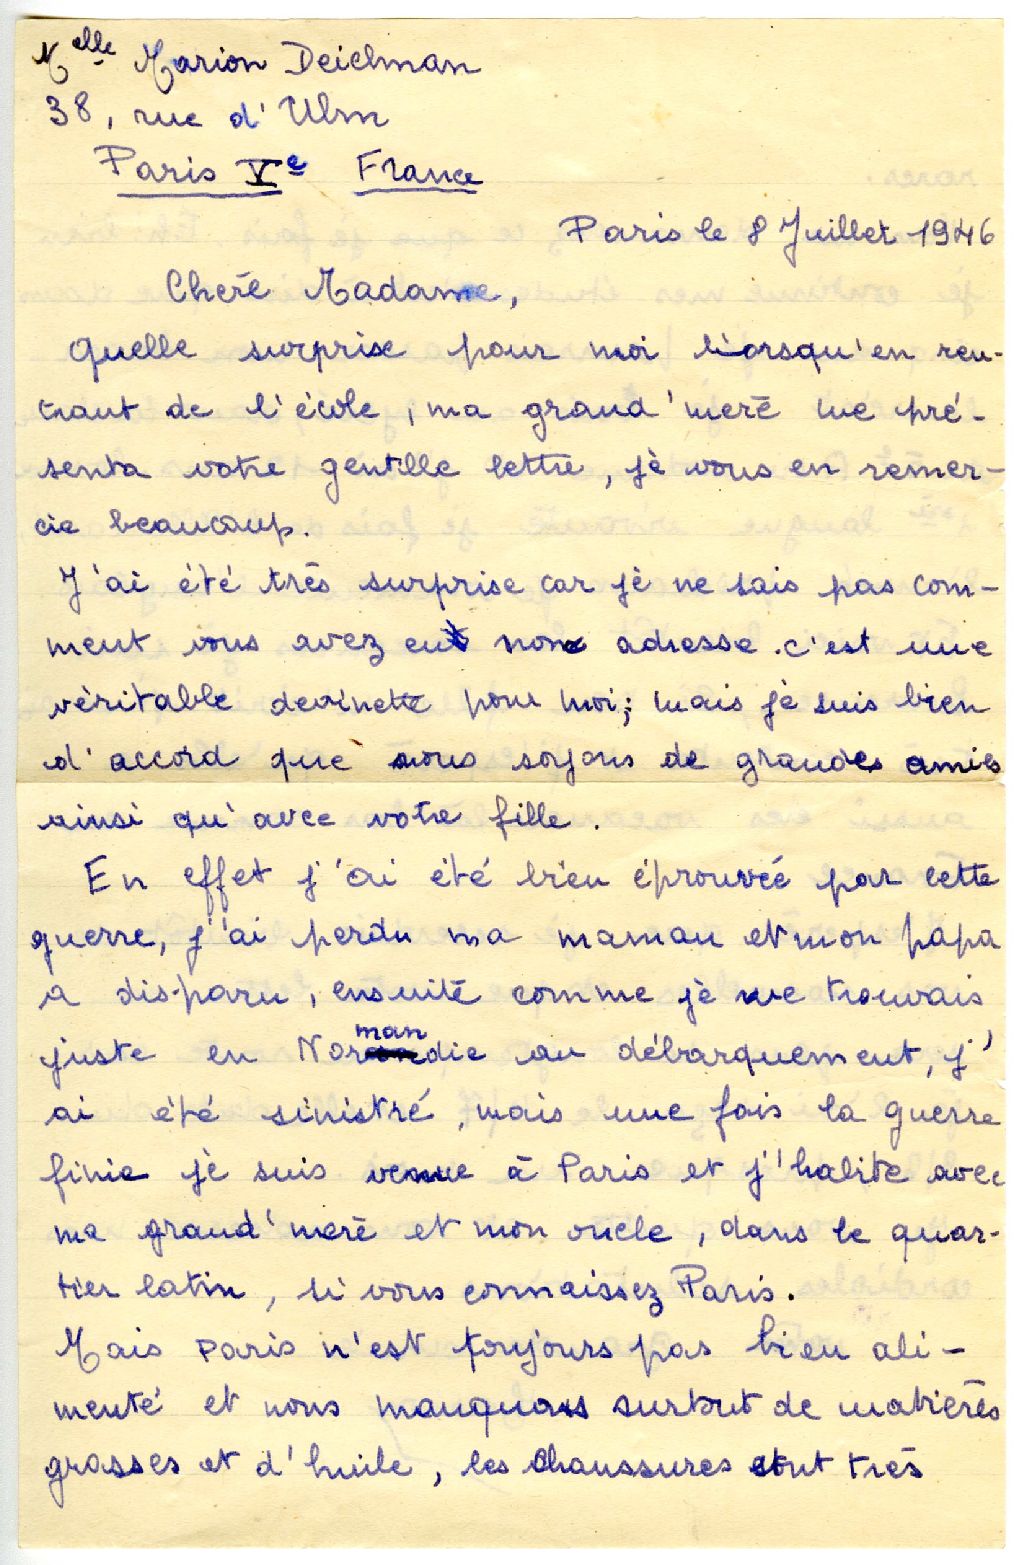 Melle Marion Deichman
38, rue d'Ulm
Paris Ve France
Paris le 8 Juillet 1946
Chère Madame,
Quelle surprise pour moi lorsqu'en ren-
trant de l'école, ma grand'mère me pré-
senta votre gentille lettre, je vous en remer-
cie beaucoup.
J'ai été très surprise car je ne sais pas com-
ment vous avez eu mon adresse. c'est une
véritable devinette pour moi; mais je suis bien
d'accord que nous soyons de grandes amies
ainsi qu'avec votre fille.
En effet j'ai été bien éprouvée par cette
guerre, j'ai perdu ma maman et mon papa
a disparu, ensuite comme je me trouvais
juste en Normandie au débarquement, j'
ai été sinistré, mais une fois la guerre
finie je suis venue à Paris et j'habite avec
ma grand'mère et mon oncle, dans le quar-
tier latin, si vous connaissez Paris.
Mais Paris n'est toujours pas bien ali-
menté et nous manquons surtout de matières
grasses et d'huile, les chaussures sont très